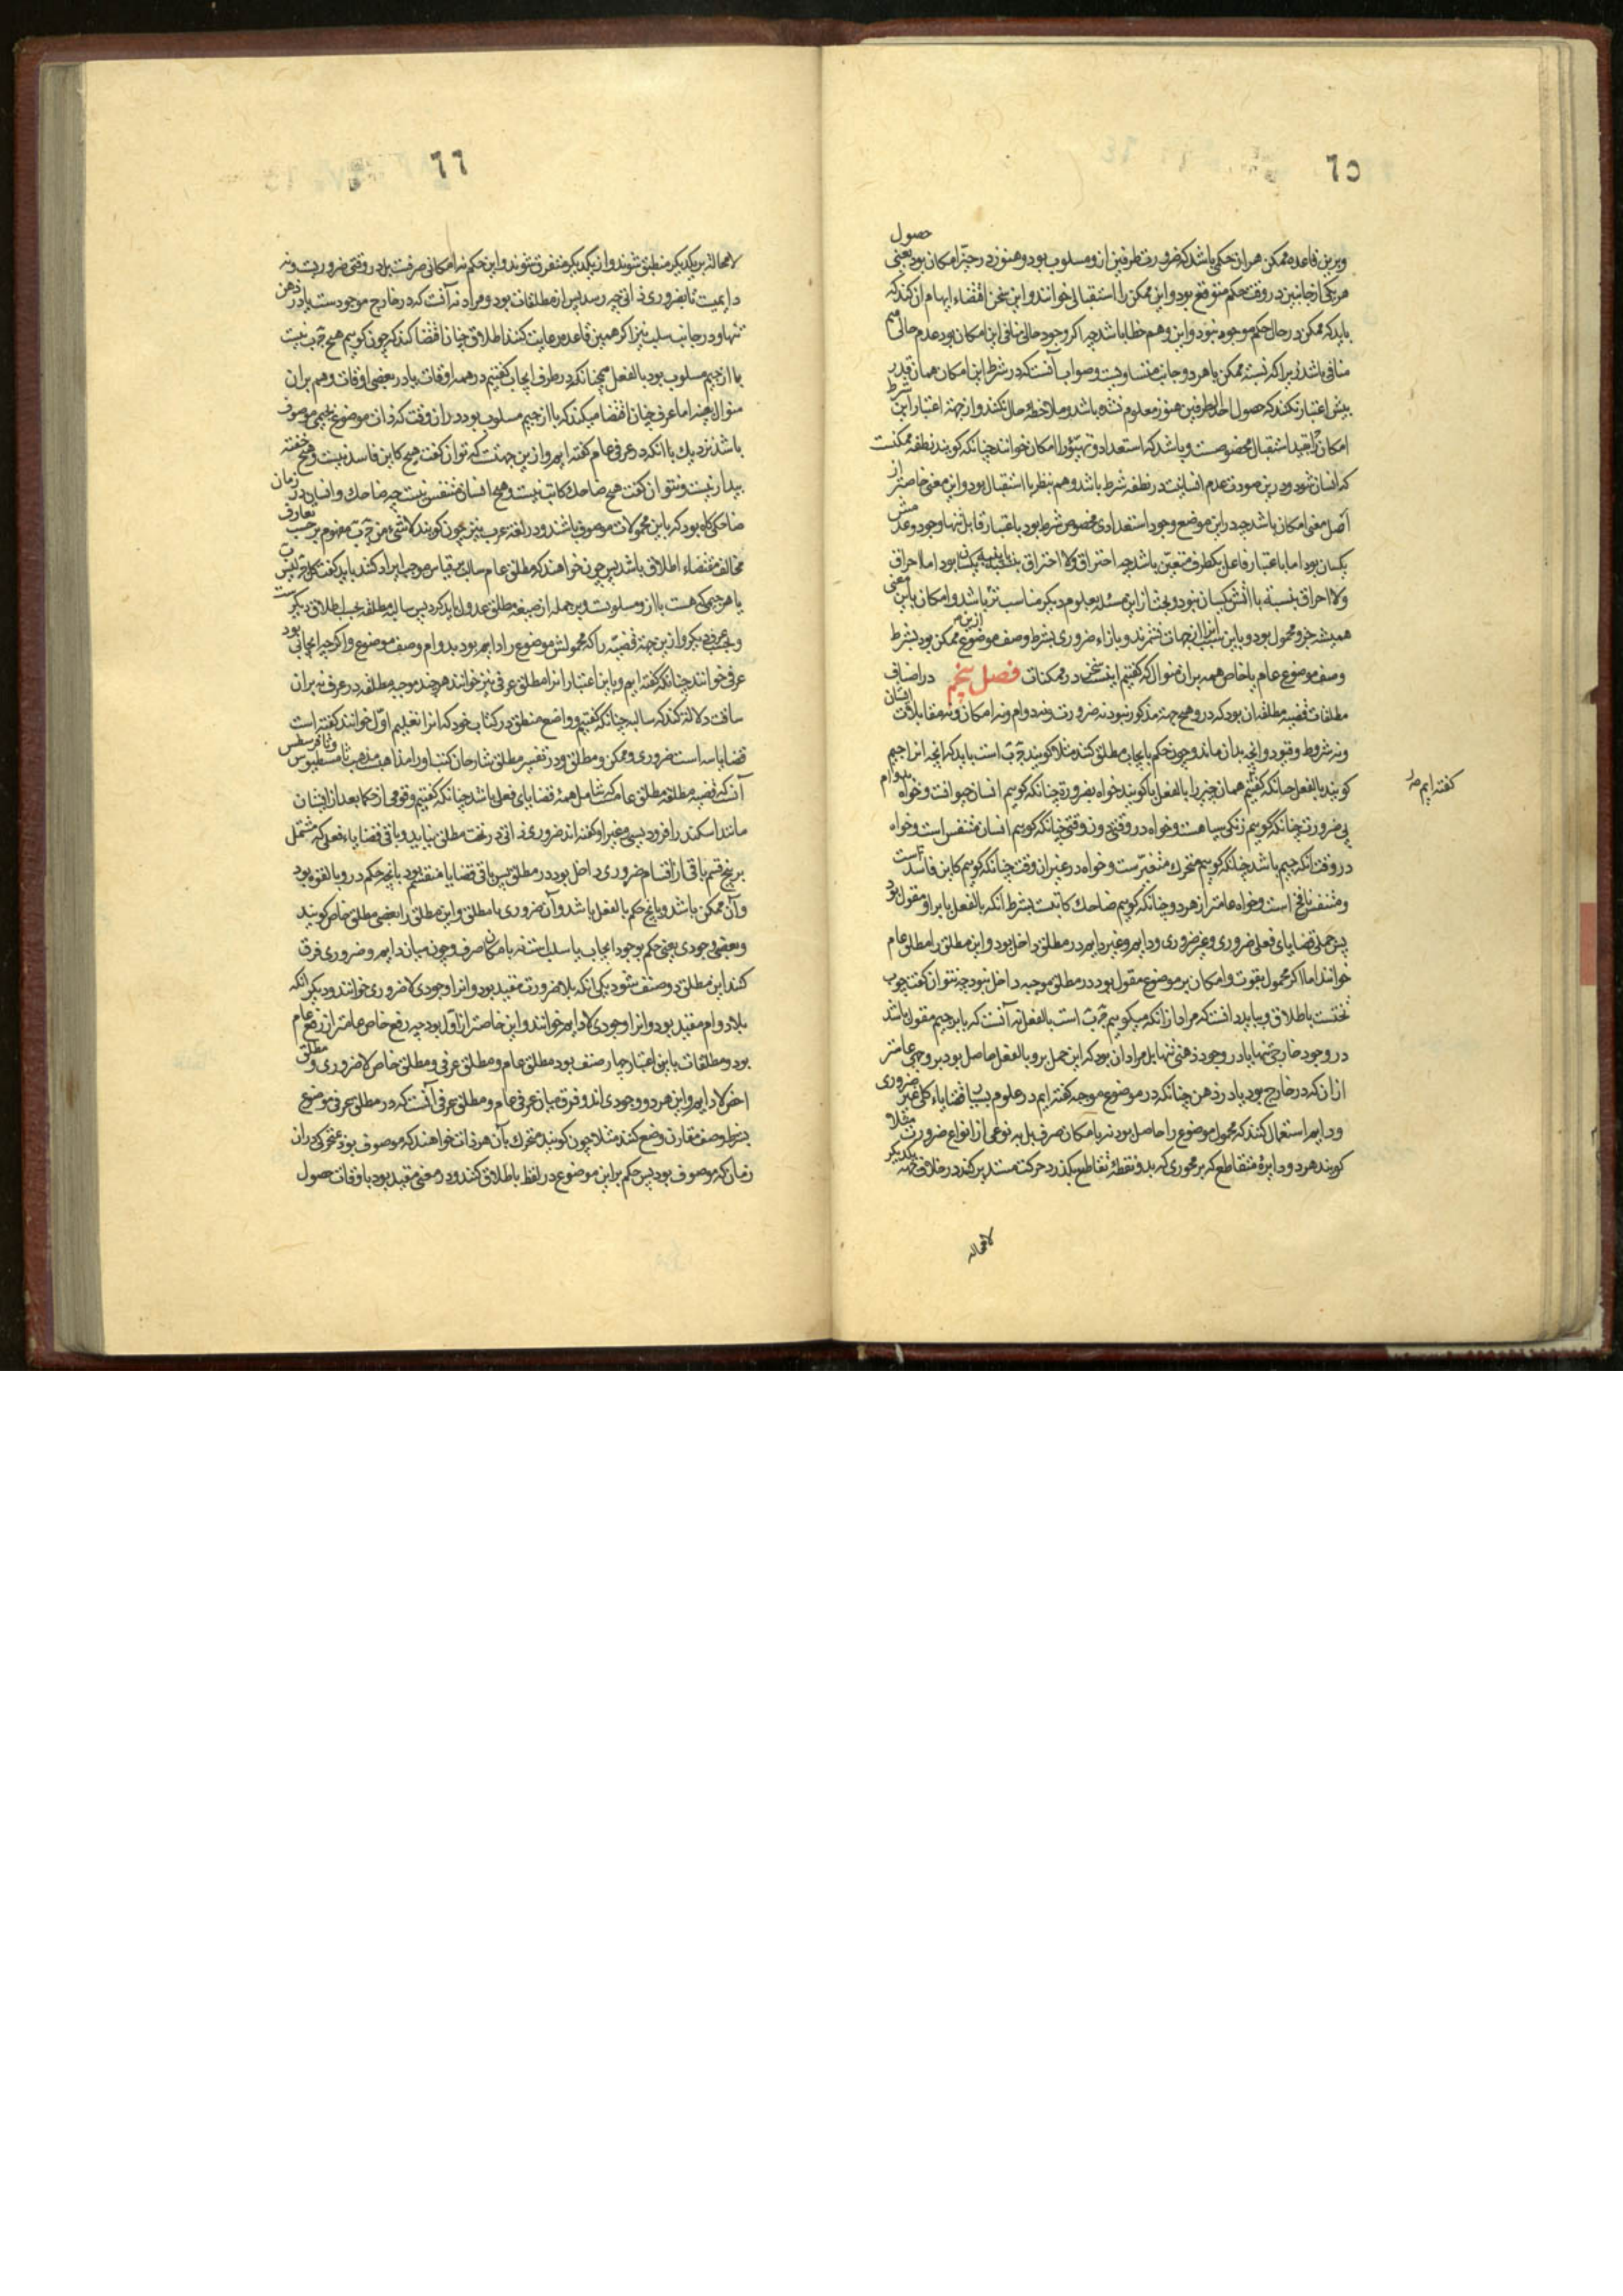 ٦٥
حصول
وبرین قاعده ممکن هر ان حکمی باشد که ضرورت طرفین ازو مسلوب بود و هنوز در حیز امکان بود یعنی
هر یکی از جانبین در وقت حکم متوقع بود و این ممکن را استقبالی خوانند و این سخن اقتضاء ایهام ان کند که
باید که ممکن در حال حکم موجود نبود و این وهم خطا باشد چه اکر وجود حالی منافی این امکان بود عدم حالی هم
منافی باشد زیرا که نسبة ممکن با هر دو جانب متساویست و صواب آنست که در شرط این امکان همان قدر
بیش اعتبار نکنند که حصول احد الطرفین هنوز معلوم نشده باشد و ملاحظه حال نکنند و از جهة اعتبار این شرط
امکان را قید استقبال مخصوصست و باشد که استعداد و تهیؤ را امکان خوانند چنانکه کویند نطفه ممکنست
که انسان شود و درین صورت عدم انسانیت در نطفه شرط باشد و هم بنظر با استقبال بود و این معنی خاصتر از
اصل معنی امکان باشد چه درین موضع وجود استعدادی مخصوص شرط بود باعتبار قابل تنها و وجود و عدمش
یکسان بود اما باعتبار فاعل یکطرف متعین باشد چه احتراق ولا احتراق بنسبة با پنبه یکسان بود اما احراق
ولا احراق بنسبة با اتش یکسان نبود و بحث از این مسئله بعلوم دیکر مناسب تر باشد و امکان باین معنی
همیشه جزو محمول بود و باین سبب انرا از جهات نشمرند و بازاء ضروری بشرط وصف موضوع ممکن بود بشرط
وصف موضوع عام یا خاص همه بران منوال که کفتیم اینست سخن در ممکنات فصل پنجم در اصناف
مطلقات قضیه مطلقه ان بود که درو هیچ جهة مذکور نبود نه ضرورت و نه دوام و نه امکان و نه مقابلات ایشان
و نه شروط و قیود و انچه بدان ماند و چون حکم بایجاب مطلق کنند مثلا کویند ج ب است باید که انچه انرا جیم
کویند بالفعل چنانکه کفتیم همان چیز را بالفعل با کویند خواه بضرورة چنانکه کویم انسان حیوانست و خواه بدوام
کفته ایم صد
بی ضرورت چنانکه کویم زنکی سیاهست و خواه در وقتی دون وقتی چنانکه کویم انسان متنفس است و خواه
در وقت انکه جیم باشد چنانکه کویم متحرک متغیرست و خواه در غیر ان وقت چنانکه کویم کاین فاسد است
و متنفس نافخ است و خواه عامتر از هر دو چنانکه کویم ضاحک کاتبست بشرط انکه بالفعل با بر او مقول بود
پس جملی قضایای فعلی ضروری و غیر ضروری و دایم و غیر دایم در مطلق داخل بود و این مطلق را مطلق عام
خوانند اما اکر محمول بقوت و امکان بر موضوع مقول بود در مطلق موجبه داخل نبود چه نتوان کفت چوب
تختست باطلاق و بباید دانست که مراد از انکه میکوییم ج ب است بالفعل نه آنست که با بر جیم مقول باشد
در وجود خارجی تنها یا در وجود ذهنی تنها بل مراد ان بود که این حمل برو بالفعل حاصل بود بر وجهی عامتر
از ان که در خارج بود یا در ذهن چنانکه در موضوع موجبه کفته ایم و در علوم بسیار قضایاء کلی غیر ضروری
و دایم استعمال کنند که محمول موضوع را حاصل بود نه بامکان صرف بل به نوعی از انواع ضرورت مثلا
کویند هر دو دایرهٔ متقاطع که بر محوری که بدو نقطهٔ تقاطع بکذرد حرکت مستدیر کند در خلاف جهة یکدیکر
لامحاله
٦٦
لامحاله بر یکدیکر منطبق شوند و از یکدیکر متفرق شوند و این حکم نه امکانی صرفست بل در وقتی ضروریست و نه
دایمست تا بضروری ذاتی چه رسد پس از مطلقات بود و مراد نه آنست که در خارج موجودست یا در ذهن
تنها و در جانب سلب نیز اکر همین قاعده رعایت کنند اطلاق چنان اقتضا کند که چون کوییم هیچ ج ب نیست
با از جیم مسلوب بود بالفعل همچنانکه در طرف ایجاب کفتیم در همه اوقات یا در بعضی اوقات و هم بران
منوال بعینه اما عرف چنان اقتضا میکند که با از جیم مسلوب بود در ان وقت که ذات موضوع بجیمی موصوف
باشد نزدیک باانکه در عرفی عام کفته ایم و ازین جهتست که نتوان کفت هیچ کاین فاسد نیست و هیچ خفته
بیدار نیست و نتوان کفت هیچ ضاحک کاتب نیست و هیچ انسان متنفس نیست چه ضاحک و انسان در زمان
ضاحکی کاه بود که باین محمولات موصوف باشند و در لغة عرب نیز چون کویند لا شیء من ج ب مفهوم بر حسب تعارف
مخالف مقتضاء اطلاق باشد پس چون خواهند که مطلق عام سالب بر قیاس موجب ایراد کنند باید کفت کل ج لیس ب
یا هر جیمی که هست با ازو مسلوبست و بر جمله از صیغه مطلق عدول باید کرد پس سالبه مطلقه بحسب اطلاق دیکرست
و بحسب عرف دیکر و ازین جهة قضیّه را که محمولش موضوع را دایم بود بدوام وصف موضوع و اکر چه ایجابی بود
عرفی خوانند چنانکه کفته ایم و باین اعتبار انرا مطلق عرفی نیز خوانند هر چند موجبه مطلقه در عرف نه بران
سانت دلالة کند که سالبه چنانکه کفتیم و واضع منطق در کتاب خود که انرا تعلیم اوّل خوانند کفته است
قضایا سه است ضروری و ممکن و مطلق و در تفسیر مطلق شارحان کتب او را مذاهبست مذهب ثامسطیوس و ثاوفرسطس
آنست که قضیه مطلقه مطلق عامست که شامل همهٔ قضایای فعلی باشد چنانکه کفتیم و قومی از حکما بعد از ایشان
مانند اسکندر افرودیسی و غیر او کفته اند ضروری ذاتی در تحت مطلق نیاید و باقی قضایاء فعلی که مشتمل
بر پنج قسم باقی از اقسام ضروری داخل بود در مطلق پس باقی قضایا منقسم بود بانچه حکم درو بالقوه بود
و آن ممکن باشد و بانچ حکم بالفعل باشد و آن ضروری یا مطلق و این مطلق را بعضی مطلق خاص کویند
و بعضی وجودی یعنی حکم بوجود ایجاب یا سلب است نه بامکان صرف و چون میان دایم و ضروری فرق
کنند این مطلق دو صنف شود یکی انکه بلا ضرورت مقید بود و انرا وجودی لا ضروری خوانند و دیکر انکه
بلا دوام مقید بود و انرا وجودی لا دایم خوانند و این خاصتر از اول بود چه رفع خاص عامتر از رفع عام
بود و مطلقات باین اعتبار چهار صنف بود مطلق عام و مطلق عرفی و مطلق خاص لا ضروری و مطلق
اخص لا دایم و این هر دو وجودی اند و فرق میان عرفی عام و مطلق عرفی آنست که در مطلق عرفی موضوع
بشرط وصف مقارن وضع کنند مثلا چون کویند متحرک بآن هر ذات خواهند که موصوف بود بمتحرکی در ان
زمان که موصوف بود پس حکم بر این موضوع در لفظ باطلاق کنند و در معنی مقید بود باوقات حصول